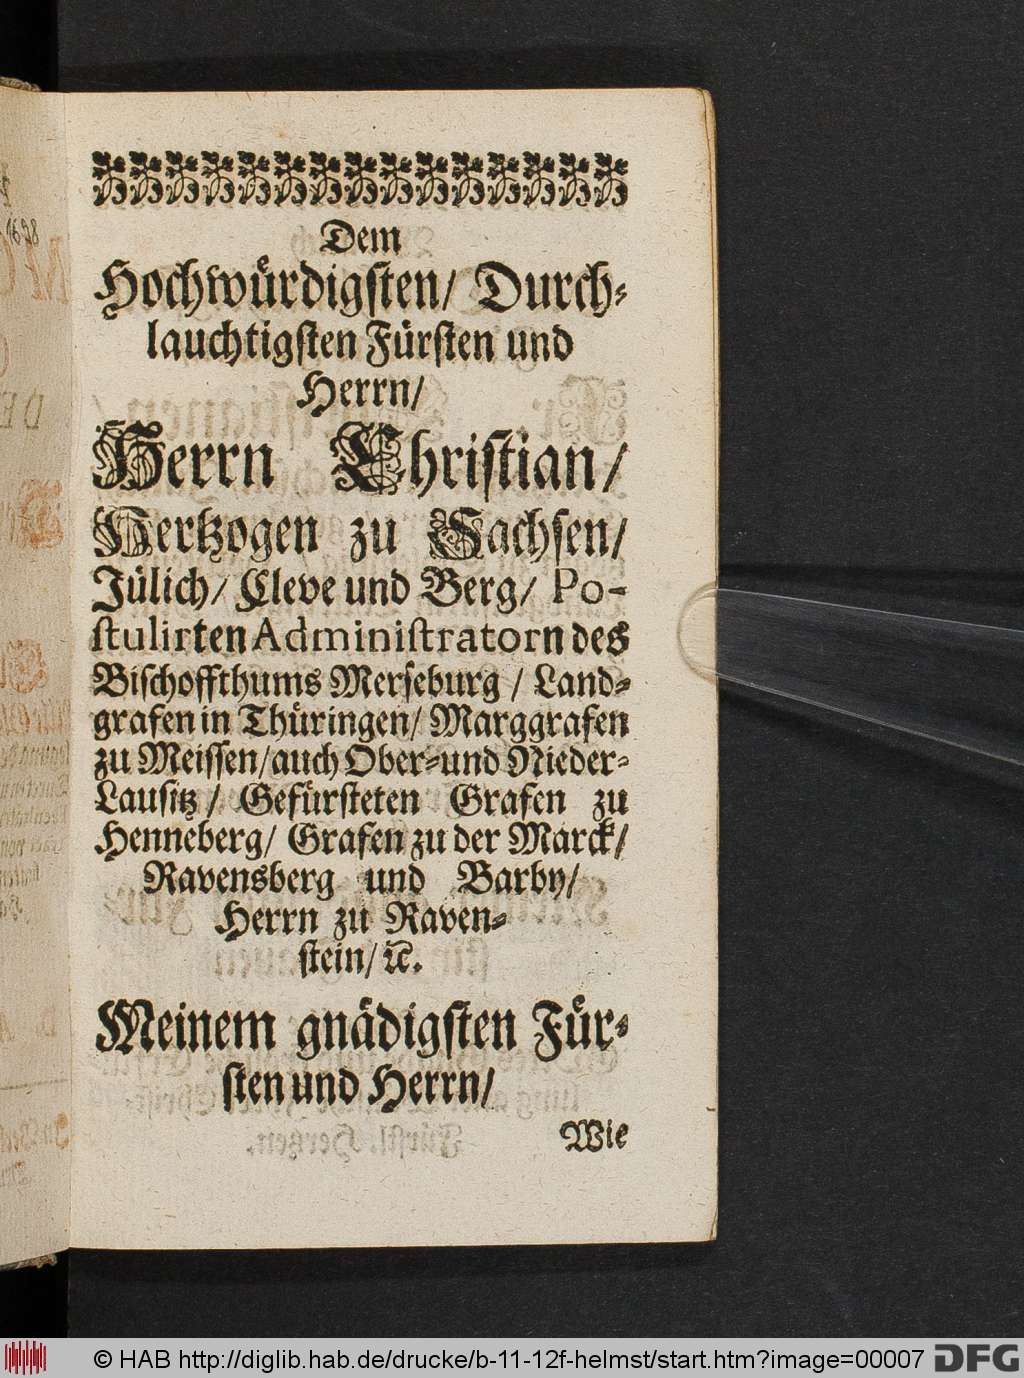 Dem
Hochwürdigsten/ Durch-
lauchtigsten Fürsten und
Herrn/
Herrn Christian/
Hertzogen zu Sachsen/
Jülich/ Cleve und Berg/ Po-
stulirten Administratorn des
Bischoffthums Merseburg/ Land-
grafen in Thüringen/ Marggrafen
zu Meissen/ auch Ober- und Nieder-
Lausitz/ Gefürsteten Grafen zu
Henneberg/ Grafen zu der Marck/
Ravensberg und Barby/
Herrn zu Raven-
stein/ ꝛc.
Meinem gnädigsten Für-
sten und Herrn/
Wie
© HAB http://diglib.hab.de/drucke/b-11-12f-helmst/start.htm?image=00007
DFG